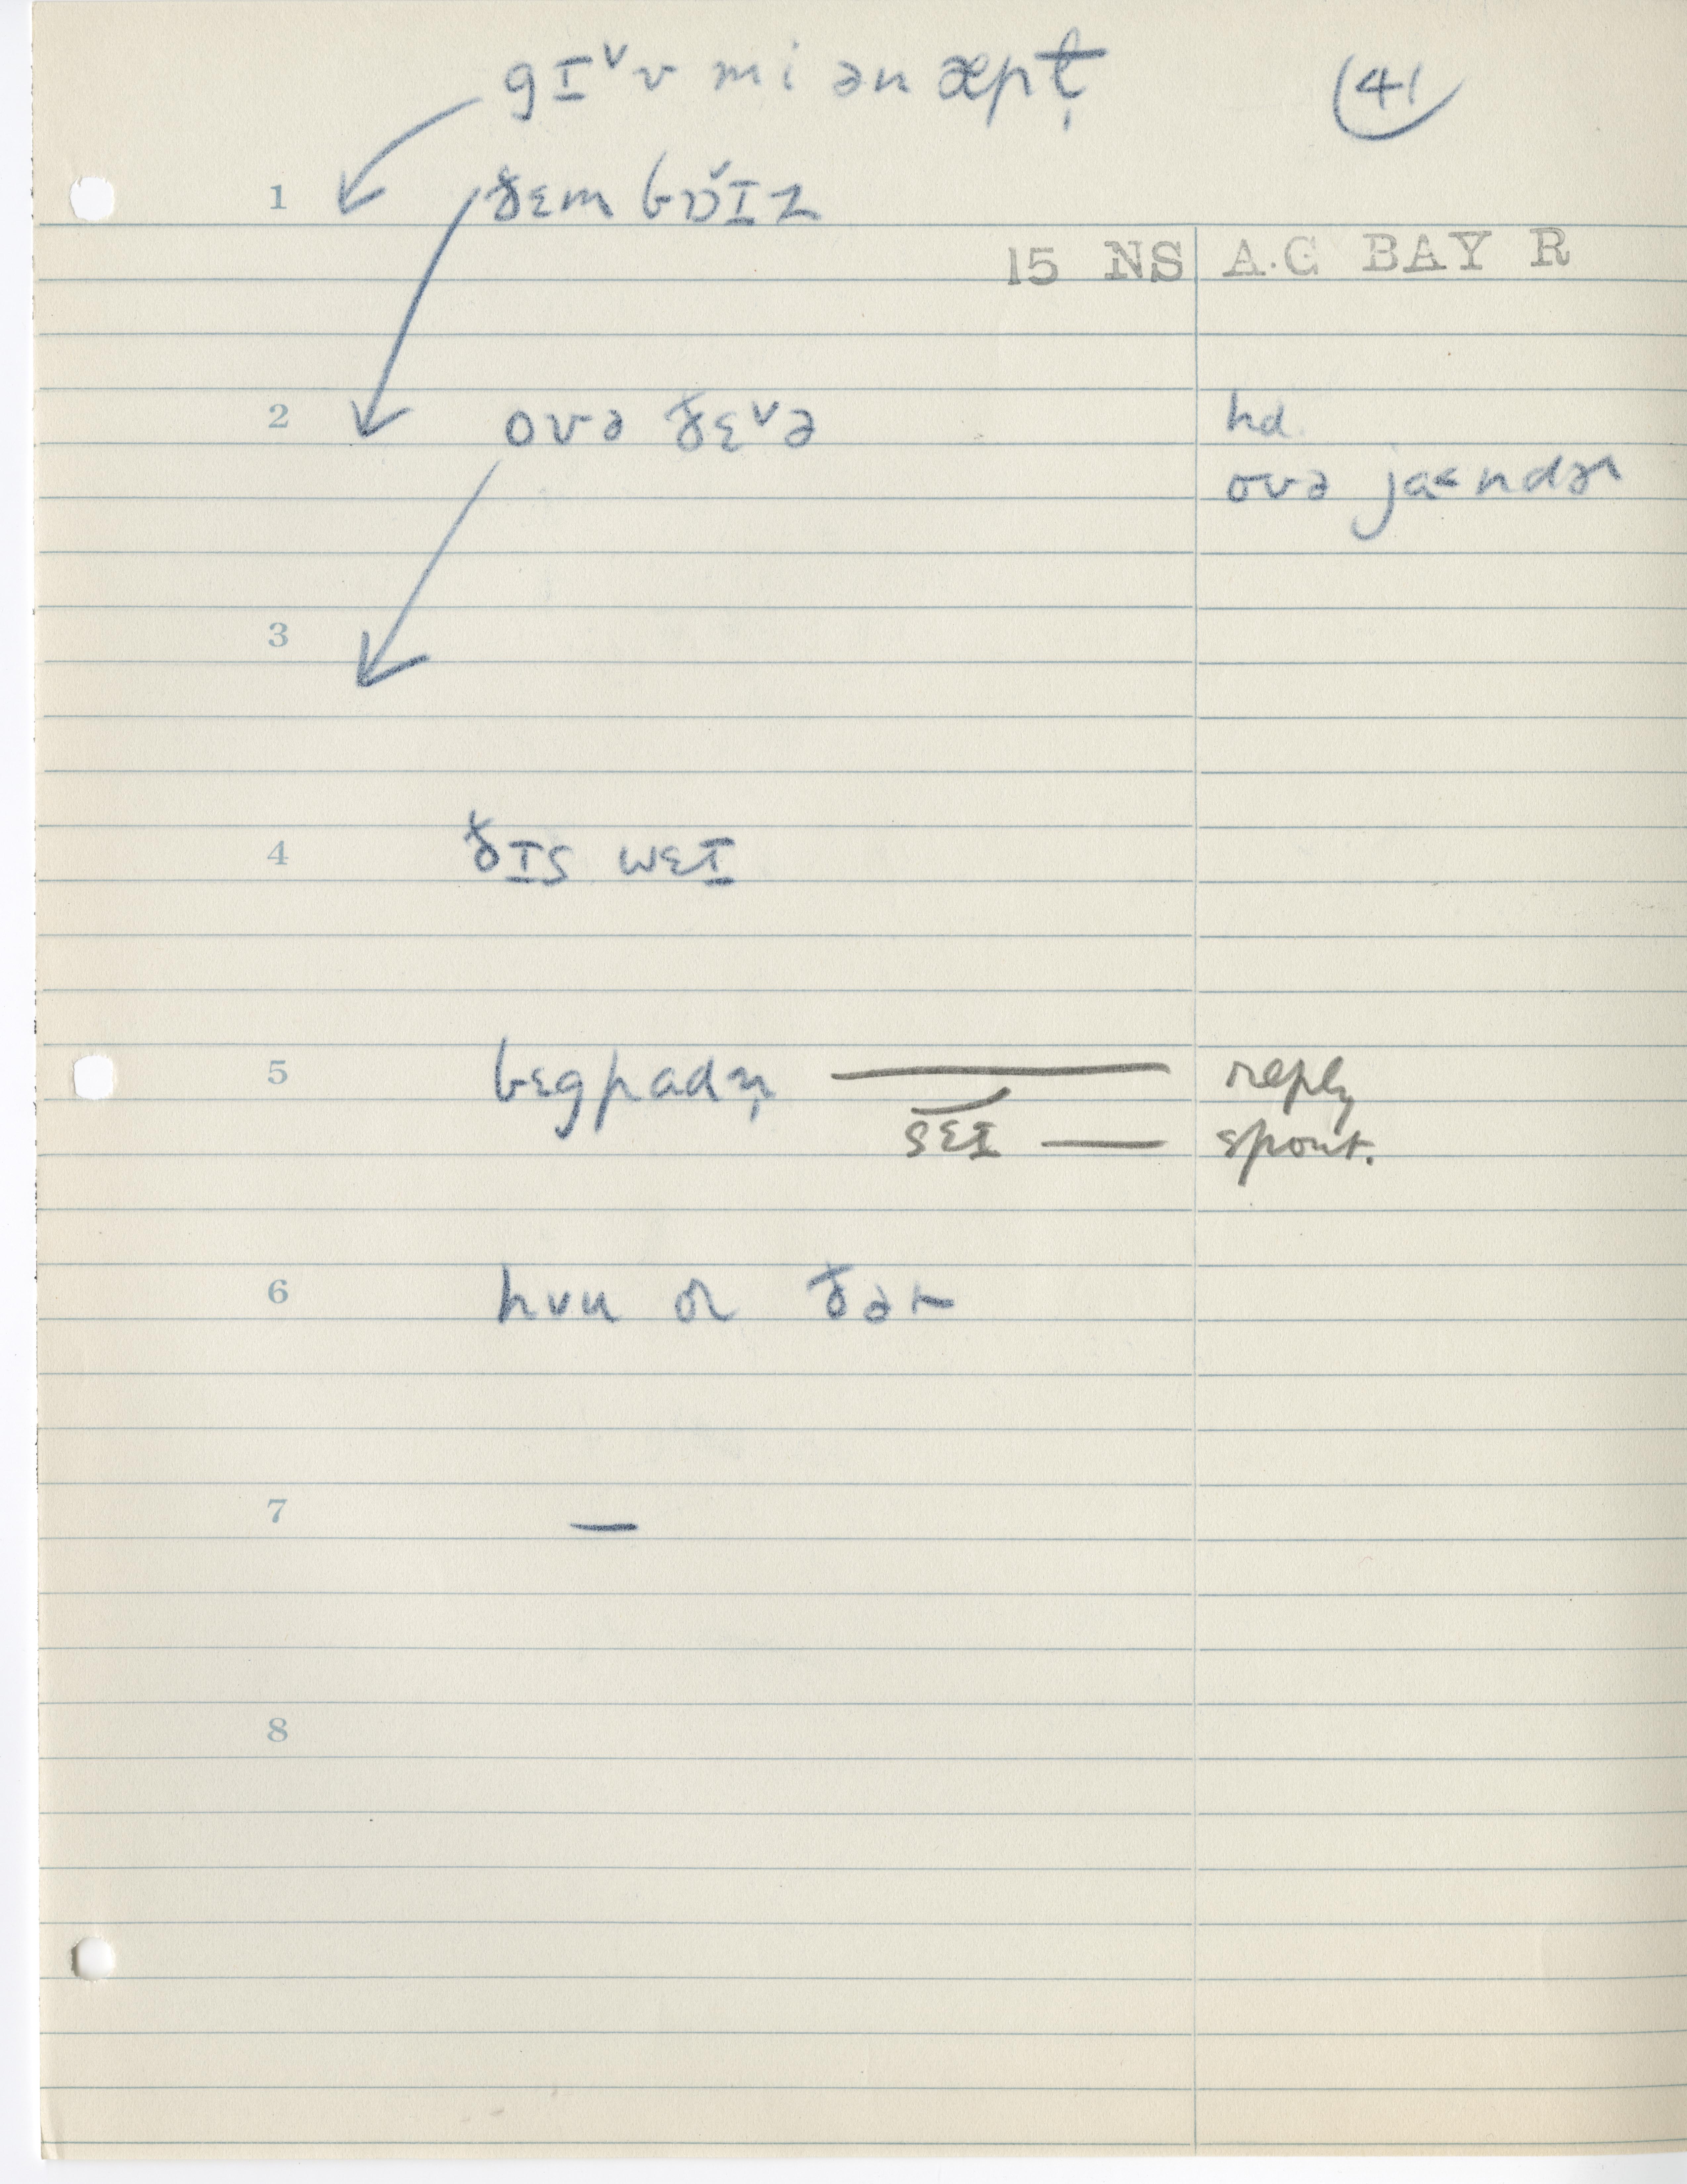 gɪᵛv mi ən æpt̩ 41
1 ðɛm bɒ̌ɪz
15 NS A.C BAY R
2 ovə ðɛᵛə hd.
ovə ja˂ndɚ
3
4 ðɪs wɛɪ
5 bɛg padn̩ reply
sɛɪ — spont.
6 hvu or ðət
7 —
8